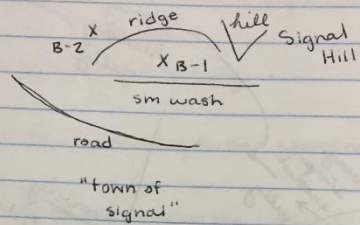 ridge
hill
Signal
Hill
X
B-2
X B-1
sm wash
road
"town of
signal"